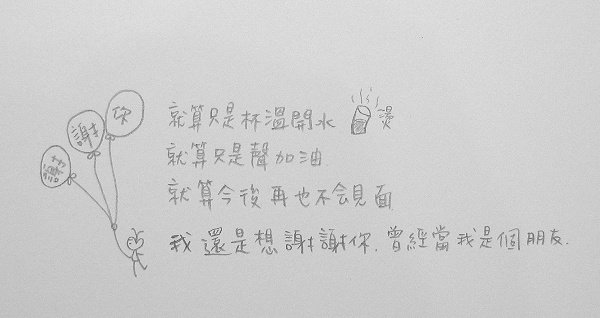 謝謝你
就算只是杯溫開水 燙
就算只是聲加油
就算今後再也不会見面
我還是想謝謝你.曾經當我是個朋友.